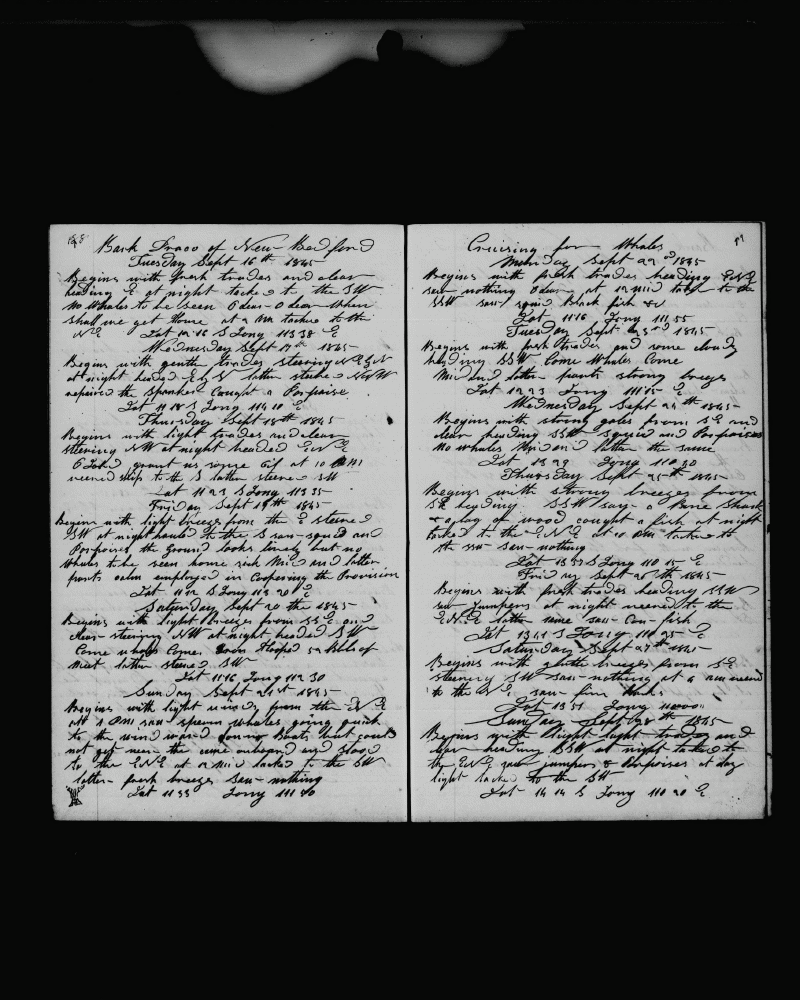 Bark Draco of New Bedford
Tuesday Sept 16th 1845
Begins with fresh trades and clear
heading E at night tacked to the SW
no Whales to be seen O dear O dear When
shall we get Home at 2 AM tacked to the
NE
Lat 12 16 S Long 113 38
Wednesday Sept 17th 1845
Begins with gentle trades steering
at night headed latter steered
repaired the Spanker Caught a Porpoise
Lat 11 18 S Long 114 10
Thursday Sept 18th 1845
Begins with light trades and clear
steering NW at night headed ENE
O Lord grant us some oil at 10 AM
weared ship to the S latter steered SW
Lat 11 23 S Long 113 35
Friday Sept 19th 1845
Begins with light breezes from the E steered
SW at night hauled to the S saw squid and
Porpoises the Ground looks lonely but no
Whales to be seen home sick Mid and latter
parts calm employed in Coopering the Provision
Lat 11 12 S Long 113 20
Saturday Sept 20 the 1845
Begins with light breezes from SSE and
clear steering NW at night headed SW
Come whales Come Hooped 52 Bbls of
meat latter steered SW
Lat 11 16 Long 112 30
Sunday Sept 21st 1845
Begins with light winds from the ENE
At 1 PM saw sperm whales going quick
to the wind ward Boats but could
not get near the came onboard and stood
to the ENE at 2 Mid tacked to the SW
latter fresh breezes saw nothing
Lat 11 33 Long 111 40
Cruising for Whales
Monday Sept 22nd 1845
Begins with fresh trades heading ENE
saw nothing O dear at 12 mid tacked to the
SSW saw squid Black fish &c
Lat 11 16 Long 111 55
Tuesday Sept 23rd 1845
Begins with fresh trades and some cloudy
heading SSW Come Whales Come
Mid and latter parts strong breezes
Lat 12 23 Long 111 15 E
Wednesday Sept 24th 1845
Begins with strong gales from SE and
clear heading SSW squid and Porpoises
no whales Mid and latter the same
Lat 13 23 Long 110 30
Thursday Sept 25th 1845
Begins with strong breezes from
SE heading SSW saw a Bone Shark
of wood caught a fish at night
tacked to the ENE at 10 PM tacked to
the SSW saw nothing
Lat 13 57 S Long 110 15 E
Friday Sept 26th 1845
Begins with fresh trades heading SSW
saw jumpers at night weared to the
ENE latter same saw Cow fish
Lat 13 41 S Long 110 25 E
Saturday Sept 27th 1845
Begins with gentle breezes from SE
steering SW saw nothing at 2 am weared
to the NE saw fin backs
Lat 13 51 Long 110 00
Sunday Sept 28th 1845
Begins with light trades and
clear heading SSW at night tacked to
the ENE saw jumpers & Porpoises at day
light tacked to the SW
Lat 14 14 S Long 110 20 E